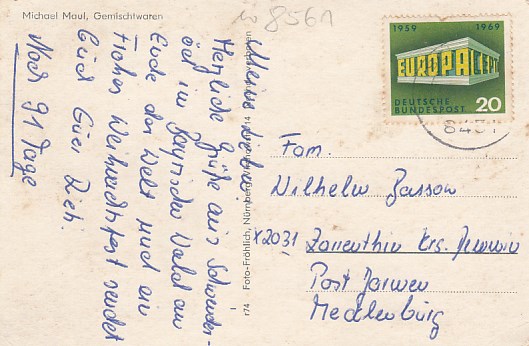 Michael Maul, Gemischtwaren
8561
1959 1969
EUROPA CEPT
DEUTSCHE
BUNDESPOST 20
845
Meine Lieben!
Herzliche Grüße aus Schwander-
öd im Bayrischen Wald am
Ende der Welt und ein
Frohes Weihnachtsfest sendet
Euch Euer Dieh.
Noch 91 Tage
Foto-Fröhlich, Nürnberg
r74
Fam.
Wilhelm Bassow
x2031 Zarrenthin Krs. Demmin
Post Jarmen
Mecklenburg